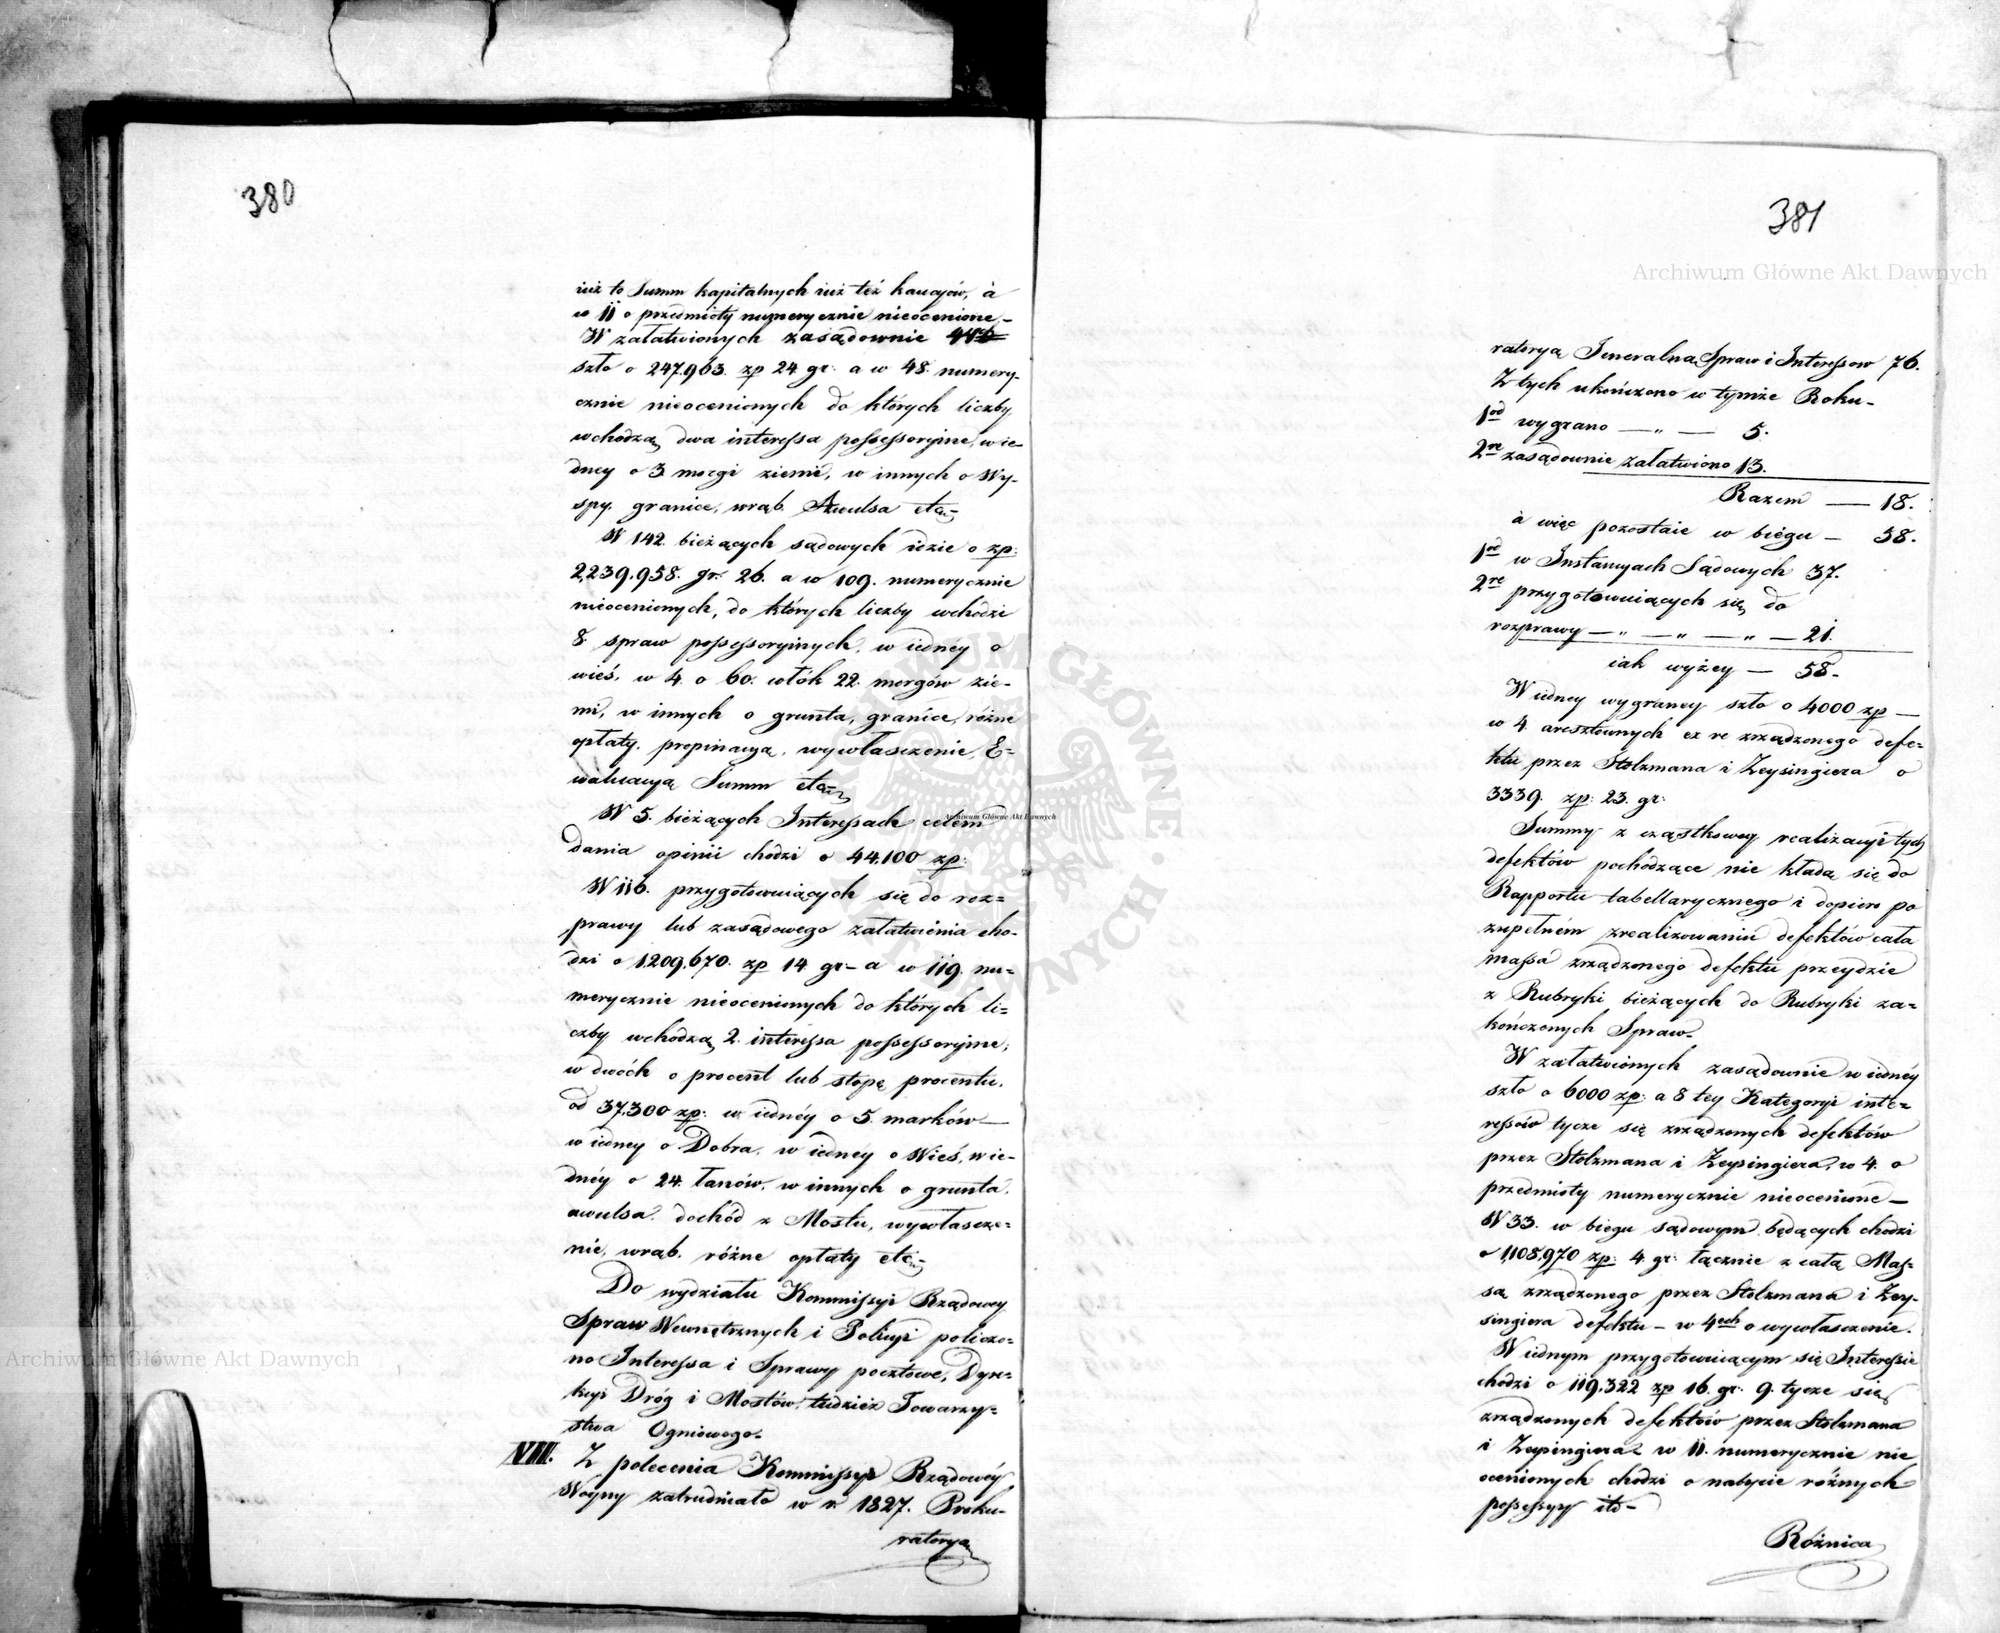 380
iuż to Summ kapitalnych iuż też kaucyów, à
w ii o przedmioty numerycznie nieocenione –
W załatwionych zasądownie
szło o 247,963. zp 24 gr: a w 48. numery-
cznie nieocenionych do których liczby
wchodzą dwa interessa possessoryine, w ie-
dney o 3 morgi ziemi, w innych o Wy-
spy, granice, wrąb. Awulsa etc:
W 142. bieżących sądowych idzie o zp:
2,239,958. gr. 26. a w 109. numerycznie
nieocenionych, do których liczby wchodzi
8. spraw possessoryinych, w iednéy o
wieś, w 4. o 60. włók 22. morgów zie-
mi, w innych o grunta, granice, różne
opłaty, propinacyą, wywłaszczenie, E-
waluacyą Summ etc:
W 5. bieżących Interessach celem
dania opinii chodzi o 44,100 zp:
W ii6. przygotowuiących się do roz=
prawy lub zasądowego załatwienia cho-
dzi o 1,209,670. zp 14 gr – a w ii9. nu=
merycznie nieocenionych do których li=
czby wchodzą 2. interessa possessoryine,
w dwóch o procent lub stopę procentu,
od 37,300 zp: w iednéy o 5. marków –
w iedney o Dobra, w iednéy o Wieś, w ie-
dnéy o 24. łanów, w innych o grunta,
awulsa, dochód z Mostu, wywłaszcze=
nie, wrąb, różne opłaty etc:
Do wydziału Kommissyi Rządowey
Spraw Wewnętrznych i Policyi policzo=
no Interessa i Sprawy pocztowe, Dyre=
kcyi Dróg i Mostów, tudzież Towarzy=
stwa Ogniowego.
VIII. Z polecenia Kommissyi Rządowéy
Woyny zatrudniało w r. 1827. Proku-
ratorya
381
ratoryą Jeneralną Spraw i Interessow 76.
Z tych ukończono w tymże Roku –
1od wygrano — „ — 5.
2re zasądownie załatwiono 13.
Razem — 18.
à więc pozostaie w biegu — 58.
1od w Instancyach Sądowych 37.
2re przygotowuiących się do
rozprawy — „ — „ — „ — 21.
iak wyżey — 58.
W iedney wygraney szło o 4000 zp —
w 4. aresztownych ex re zrządzonego defe=
ktu przez Stolzmana i Zeysingiera o
3339. zp: 23. gr:
Summy z cząstkowey realizacyi tych
defektów pochodzące nie kładą się do
Rapportu tabellarycznego i dopiero po
zupełném zrealizowaniu defektów cała
massa zrządzonego defektu przeydzie
z Rubryki bieżących do Rubryki za=
kończonych Spraw.
W załatwionych zasądownie w iednéy
szło o 6000 zp: a 8 tey Kategoryi inte=
ressów tycze się zrządzonych defektów
przez Stolzmana i Zeysingiera, w 4. o
przedmioty numerycznie nieocenione —
W 33. w biegu sądowym będących chodzi
o 1,108,970 zp: 4. gr: łącznie z całą Mas=
są zrządzonego przez Stolzmana i Zey-
singiera defektu – w 4ech o wywłaszczenie.
W iednym przygotowuiącym się Interessie
chodzi o ii9,322 zp 16. gr: 9. tycze się
zrządzonych defektów przez Stolzmana
i Zeysingiera w ii. numerycznie nie
ocenionych chodzi o nabycie różnych
possessyy itd –
Różnica
Archiwum Główne Akt Dawnych
Archiwum Główne Akt Dawnych
Archiwum Główne Akt Dawnych
ARCHIWUM GŁÓWNE AKT DAWNYCH